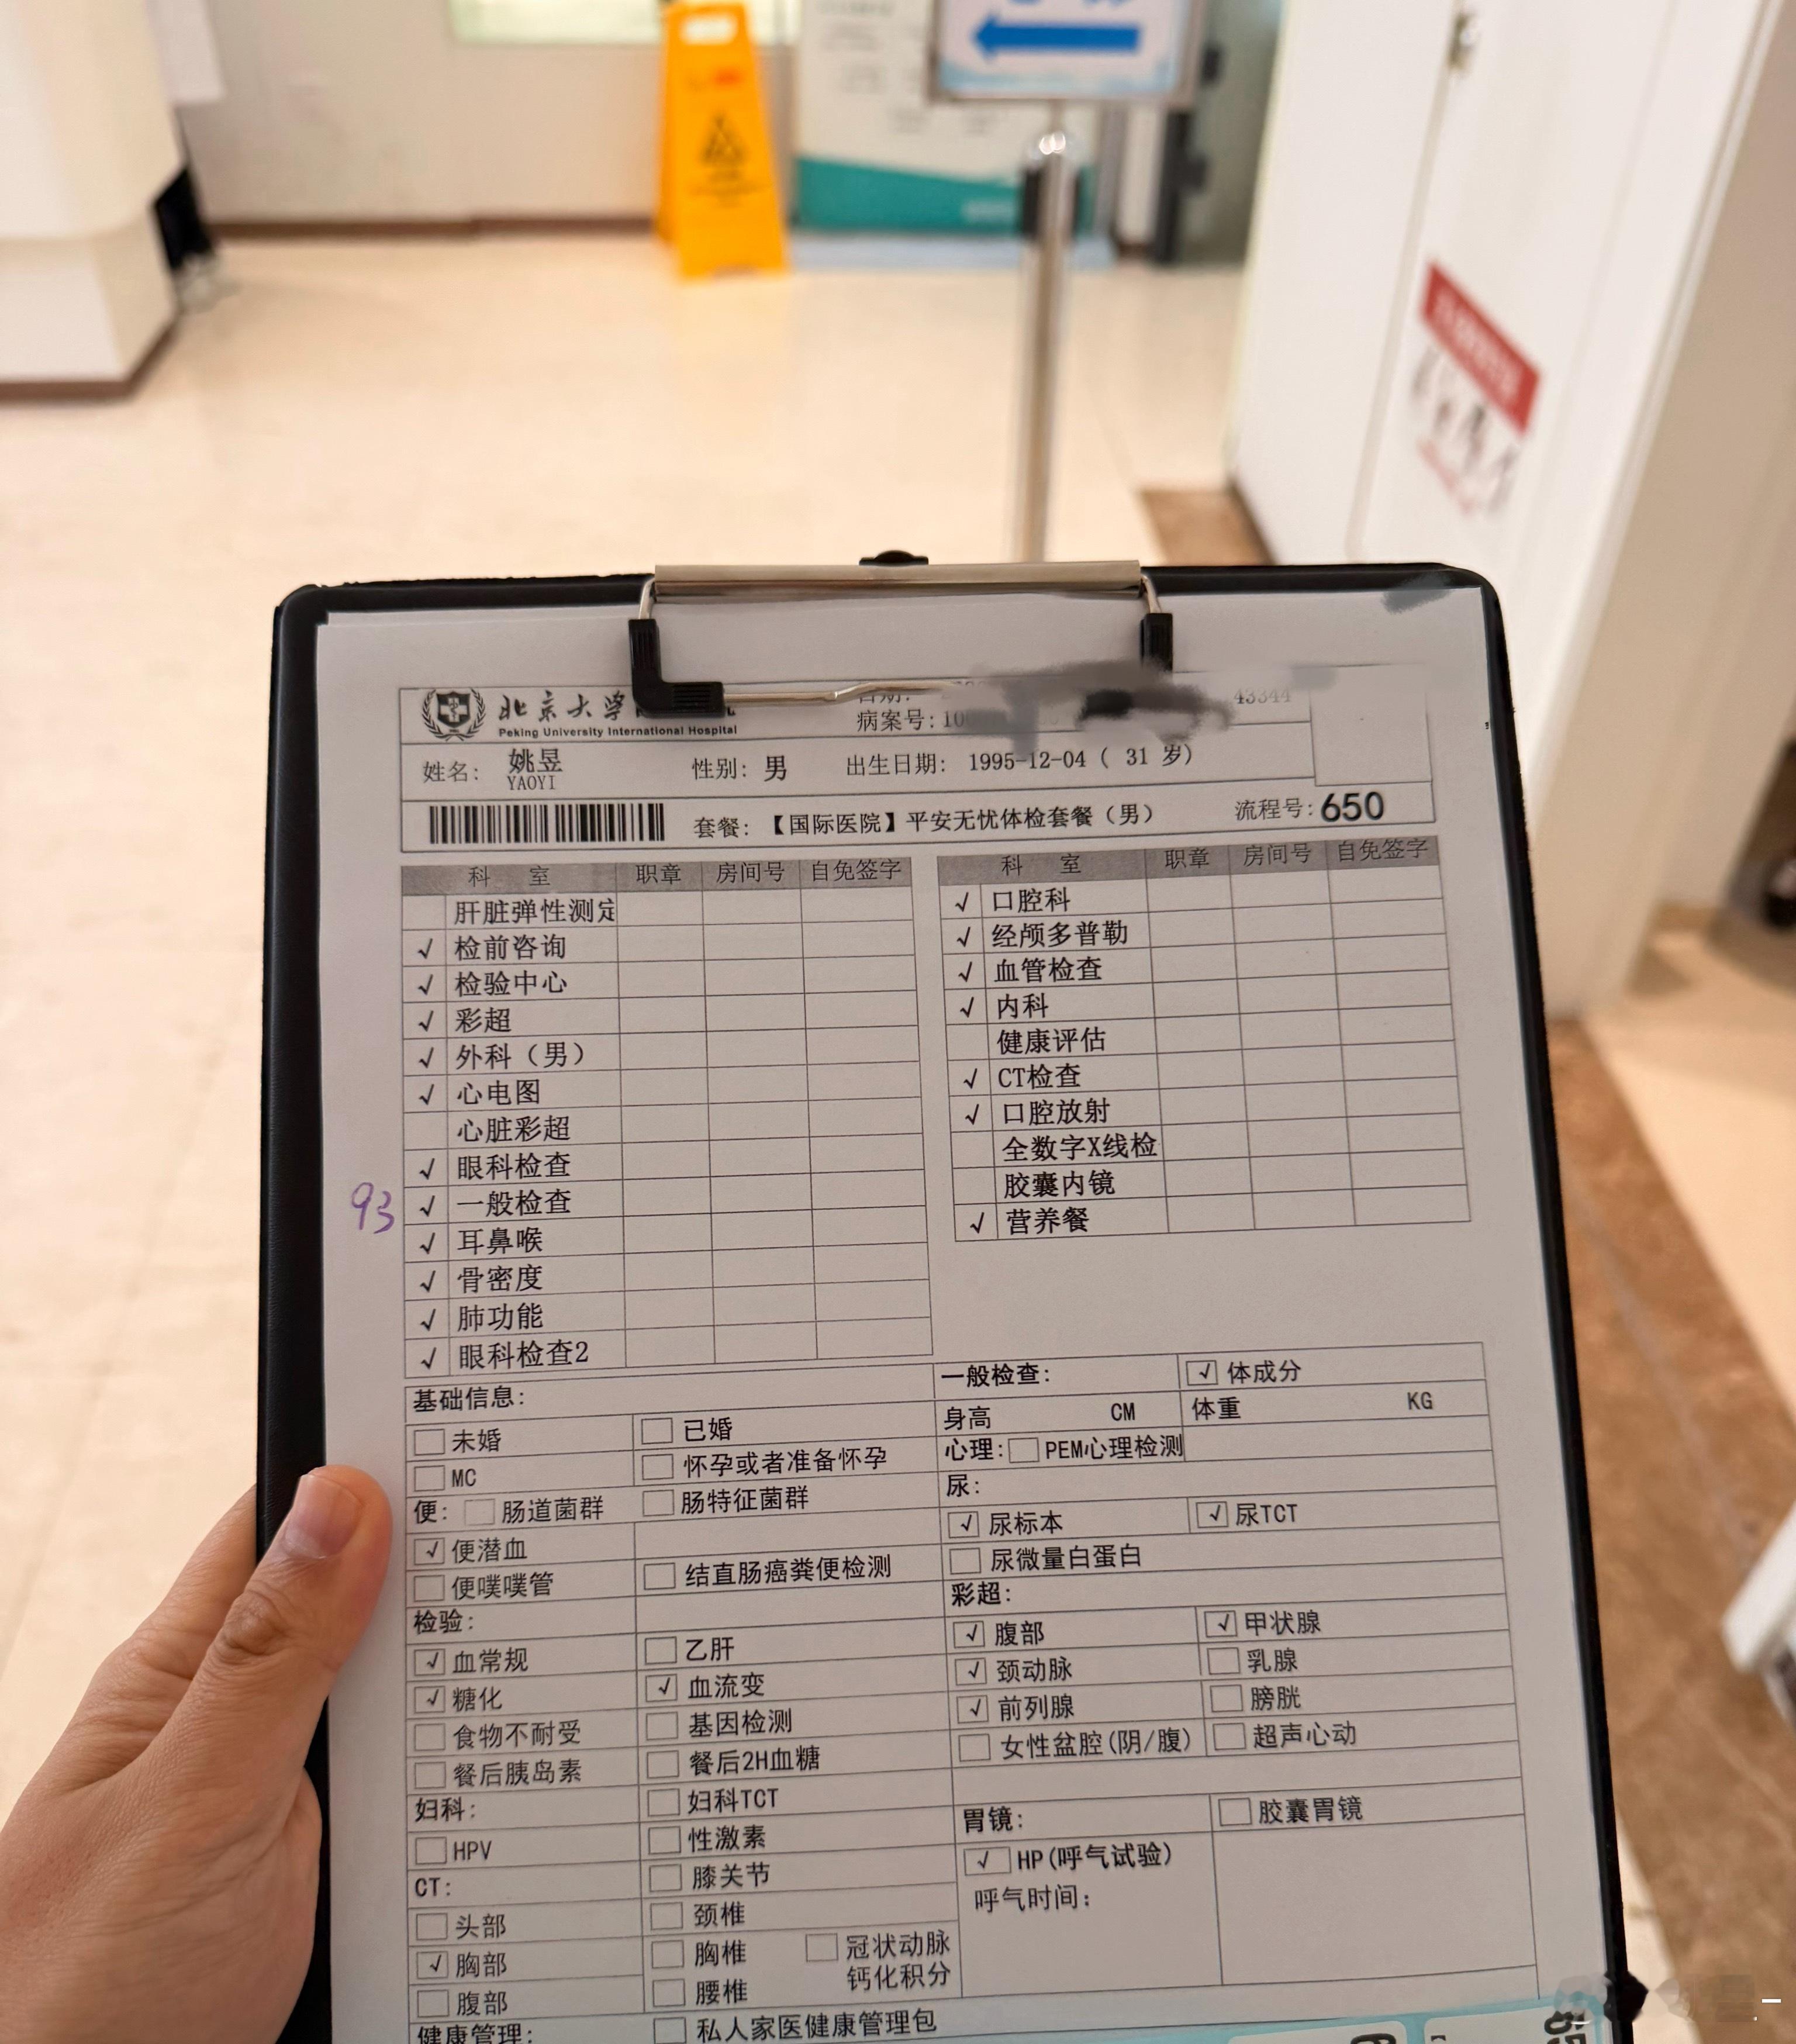 北京大学
Peking University International Hospital
日期:
43344
病案号:10
姓名: 姚昱
YAOYI
性别: 男
出生日期: 1995-12-04 ( 31 岁)
套餐: 【国际医院】平安无忧体检套餐（男）
流程号:650
科 室 职章 房间号 自免签字
肝脏弹性测定
√ 检前咨询
√ 检验中心
√ 彩超
√ 外科（男）
√ 心电图
心脏彩超
√ 眼科检查
93
√ 一般检查
√ 耳鼻喉
√ 骨密度
√ 肺功能
√ 眼科检查2
科 室 职章 房间号 自免签字
√ 口腔科
√ 经颅多普勒
√ 血管检查
√ 内科
健康评估
√ CT检查
√ 口腔放射
全数字X线检
胶囊内镜
√ 营养餐
基础信息:
未婚 已婚
MC 怀孕或者准备怀孕
便: 肠道菌群 肠特征菌群
√ 便潜血
便噗噗管 结直肠癌粪便检测
检验:
√ 血常规 乙肝
√ 糖化 √ 血流变
食物不耐受 基因检测
餐后胰岛素 餐后2H血糖
妇科: 妇科TCT
HPV 性激素
CT: 膝关节
头部 颈椎
√ 胸部 胸椎 冠状动脉
钙化积分
腹部 腰椎
健康管理: 私人家医健康管理包
一般检查: √ 体成分
身高 CM 体重 KG
心理: PEM心理检测
尿:
√ 尿标本 √ 尿TCT
尿微量白蛋白
彩超:
√ 腹部 √ 甲状腺
√ 颈动脉 乳腺
√ 前列腺 膀胱
女性盆腔(阴/腹) 超声心动
胃镜: 胶囊胃镜
√ HP(呼气试验)
呼气时间: